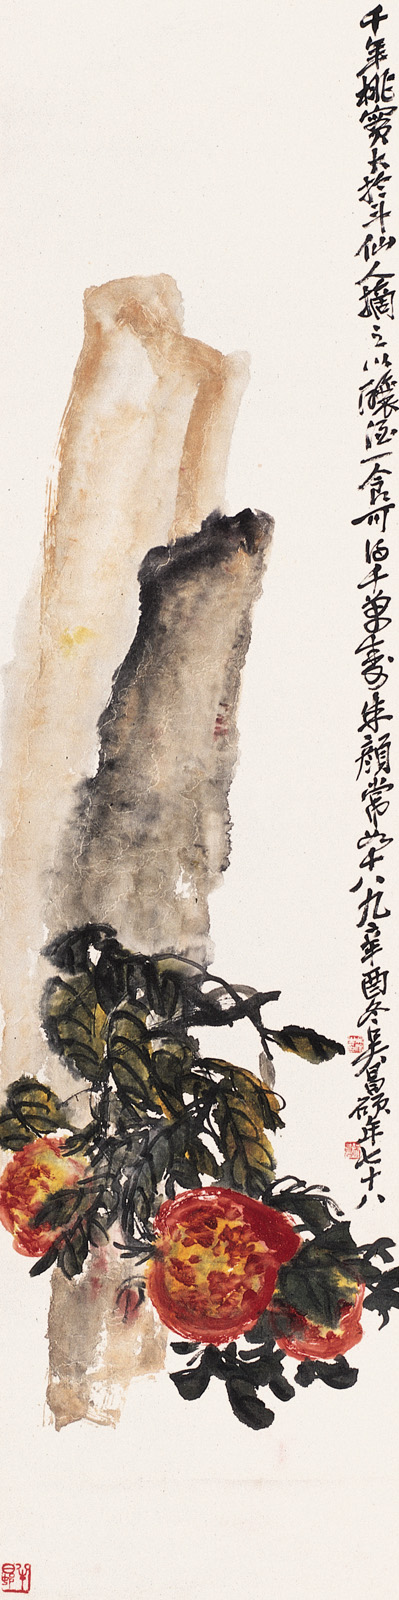 千年桃實大於斗仙人摘之以釀酒一食可得千萬壽朱顏常如十八九辛酉冬吳昌碩年七十八